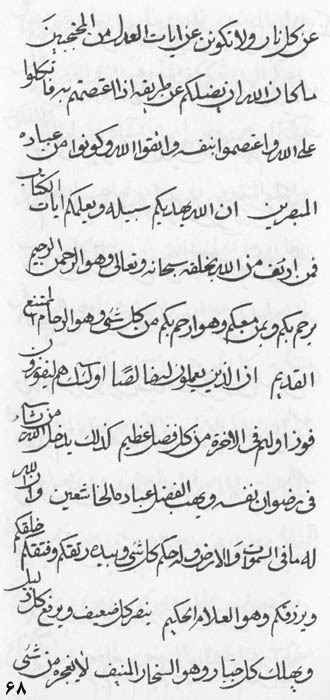 عن كل نار ولا تكونن عن ايات العدل من المحتجبين
ما كان الله ان يضلكم عن طريقه اذا اعتصمتم به فاتكلوا
على الله واعتصموا بنفسه واتقوا الله وكونوا من عباده
المبصرين ان الله يهديكم سبيله ويعلمكم ايات الكتاب
من الله بخلقه سبحانه وتعالى وهو الرحمن الرحيم
يرحم بكم وبمن معكم وهو ارحم بكم من كل شئ وهو الرحام الممتنع
القديم ان الذين يعملون لله خالصا اولئك هم ليفوزون
فوزا ولهم فى الاخرة من كل فضل عظيم كذلك يدخل الله من يشاء
فى رضوان نفسه ويهب الفضل عباده الخاشعين وان لله
له ما فى السموات والارض وله حكم كل شئ وبيده رتقكم وفتقكم خلقكم
ويرزقكم وهو العلام الحكيم ينصر كل ضعيف ويرفع كل ذليل
ويهلك كل جبار وهو السخار المنيف لا يعجزه من شئ
٦٨